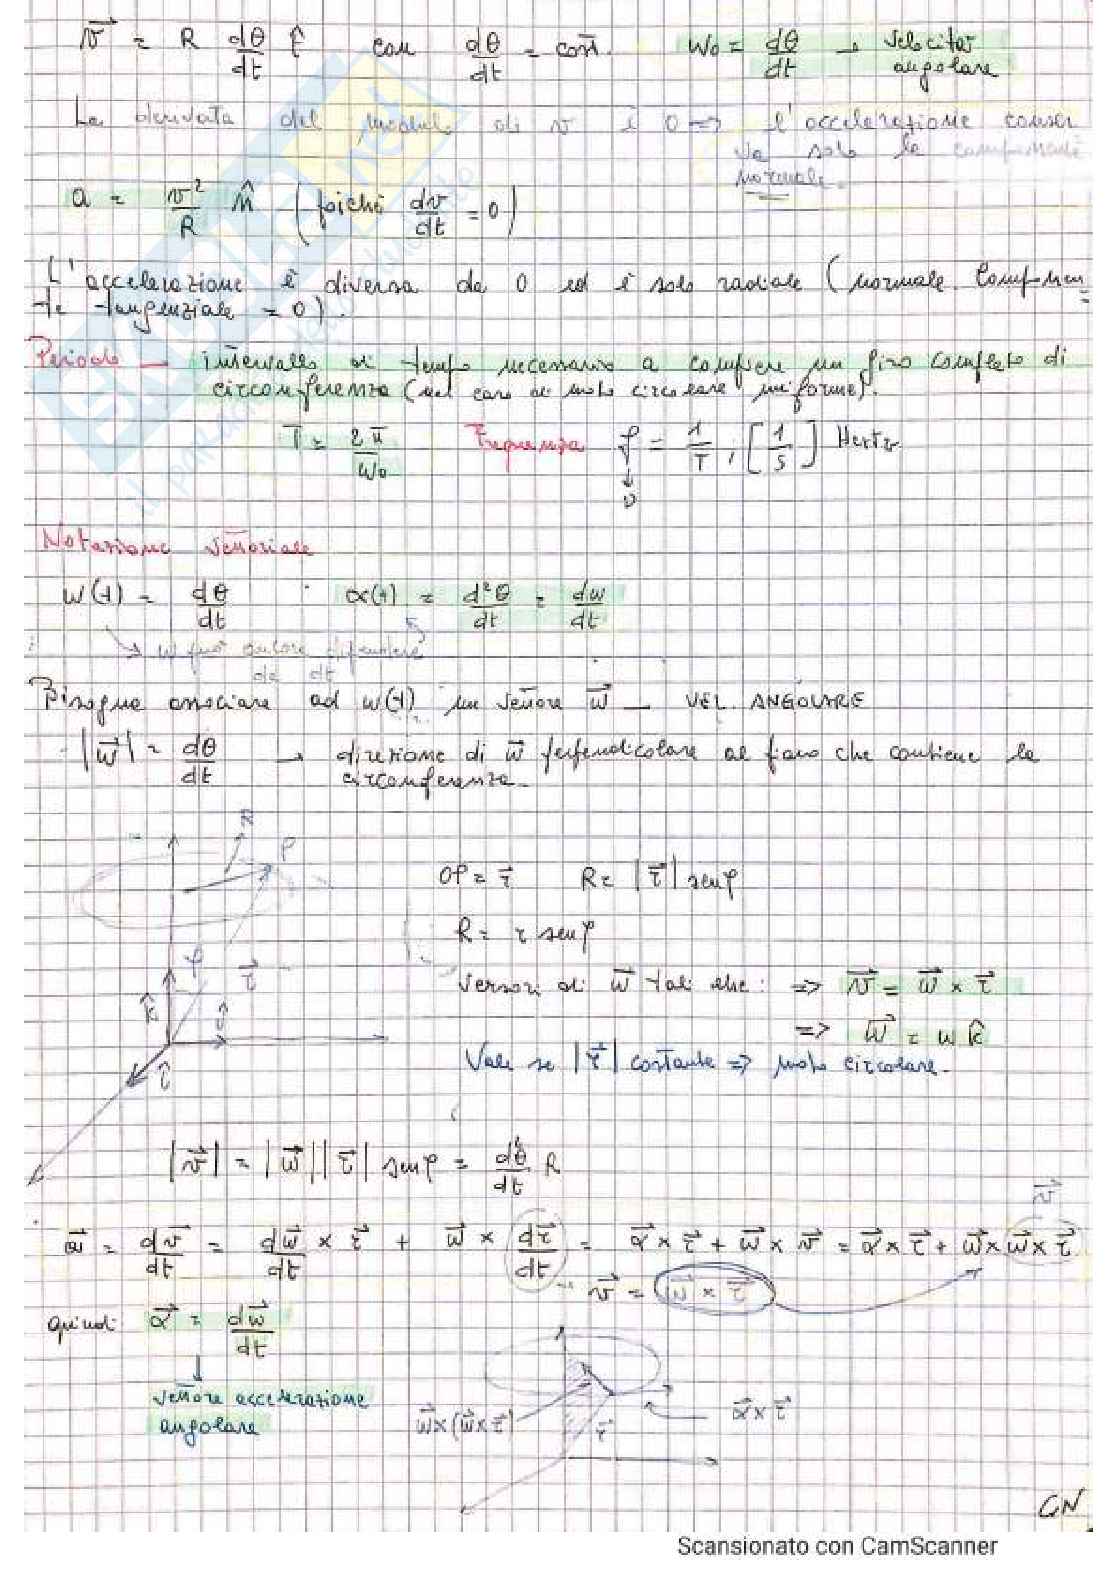 v⃗ = R dθ/dt t̂ con dθ/dt = cost. ω₀ = dθ/dt → velocità angolare
La derivata del modulo di v è 0 => l'accelerazione conserva solo la componente normale.
a = v²/R n̂ (poiché dv/dt = 0)
L'accelerazione è diversa da 0 ed è solo radiale (normale. Componen-
te tangenziale = 0).
Periodo → intervallo di tempo necessario a compiere un giro completo di
circonferenza (nel caso di moto circolare uniforme).
T = 2π/ω₀ Frequenza f = 1/T ; [1/s] Hertz
↓
ν
Notazione vettoriale
ω(t) = dθ/dt α(t) = d²θ/dt = dω/dt
→ ω può ancora dipendere
da dt
Bisogna associare ad ω(t) un vettore ω⃗ — VEL. ANGOLARE
|ω⃗| = dθ/dt → direzione di ω⃗ perpendicolare al piano che contiene la
circonferenza.
P
OP = r⃗ R = |r⃗| senφ
R = r senφ
φ r⃗
Versori di ω⃗ tali che: => v⃗ = ω⃗ × r⃗
k̂
=> ω⃗ = ω k̂
î
Vale se |r⃗| costante => moto circolare.
|v⃗| = |ω⃗||r⃗| senφ = dθ/dt R
v⃗
a⃗ = dv⃗/dt = dω⃗/dt × r⃗ + ω⃗ × dr⃗/dt = α⃗ × r⃗ + ω⃗ × v⃗ = α⃗ × r⃗ + ω⃗ × ω⃗ × r⃗
v⃗ = ω⃗ × r⃗
quindi α⃗ = dω⃗/dt
↓
vettore accelerazione
angolare
ω⃗×(ω⃗×r⃗) r⃗ α⃗×r⃗
GN
Scansionato con CamScanner